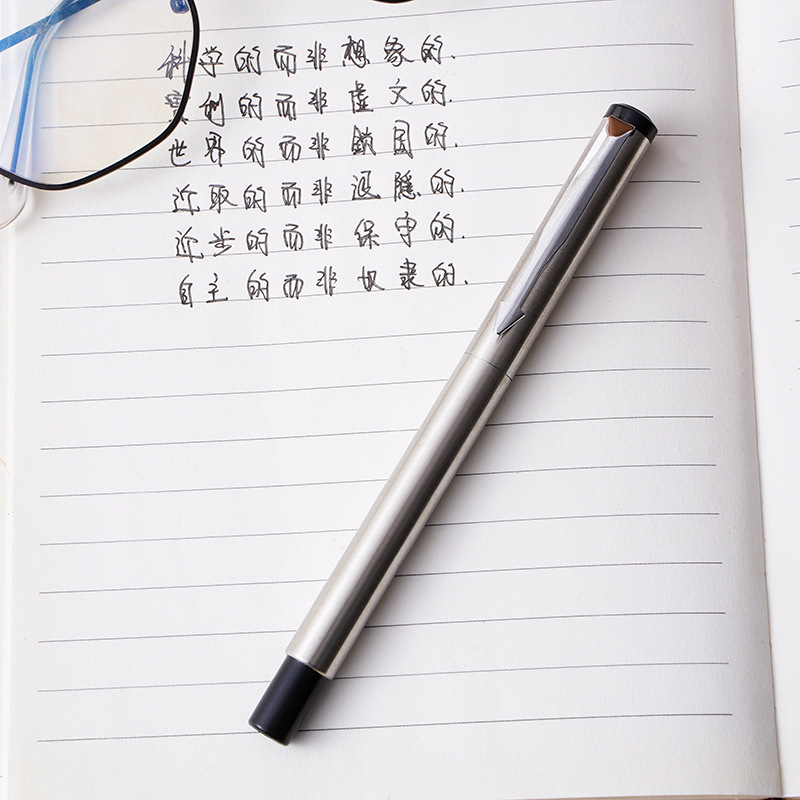 科学的而非想象的.
实利的而非虚文的.
世界的而非鎖国的.
近取的而非退隐的.
近步的而非保守的.
自主的而非奴隶的.